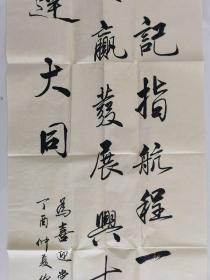 記指航程一
贏發展興
大同
為喜迎
丁酉仲夏